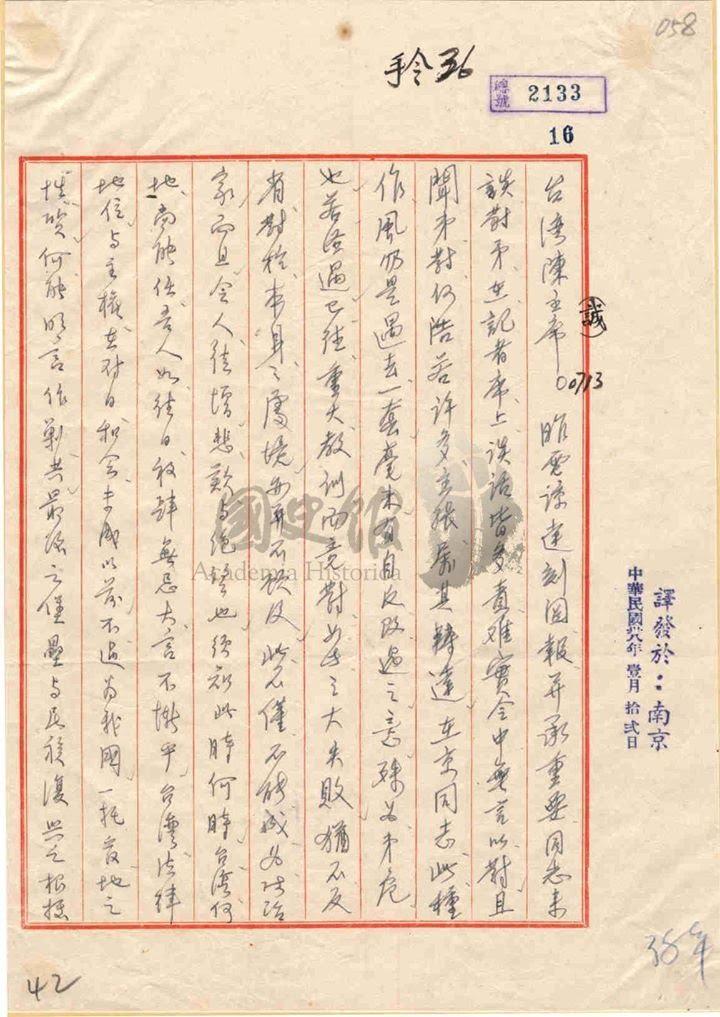 058
手令36
總號 2133
16
台湾陳主席(誠)00713 昨電諒達刻閱報并承重要同志來
談對弟在記者席上談話皆多責难實令中無言以對且
聞弟對何浩若許多主張屬其轉達在京同志此種
作風仍是過去一套毫未有自反改過之意殊为弟危
也若经過已往重大教訓而竟對如此之大失敗猶不反
省對於本身之處境亦再不顧及此不僅不能成为政治
家而且令人徒增悲歎与绝望也须知此時何時台湾何
地尚能任吾人如往日放肆無忌大言不慚乎台灣法律
地位与主權在对日和会未成以前不過为我國一托管地之
性质何能明言作剿共最後之堡壘与民族復興之根據
譯發於:南京
中華民國卅八年 壹月 拾弍日
38年
42
國史館
Academia Historica